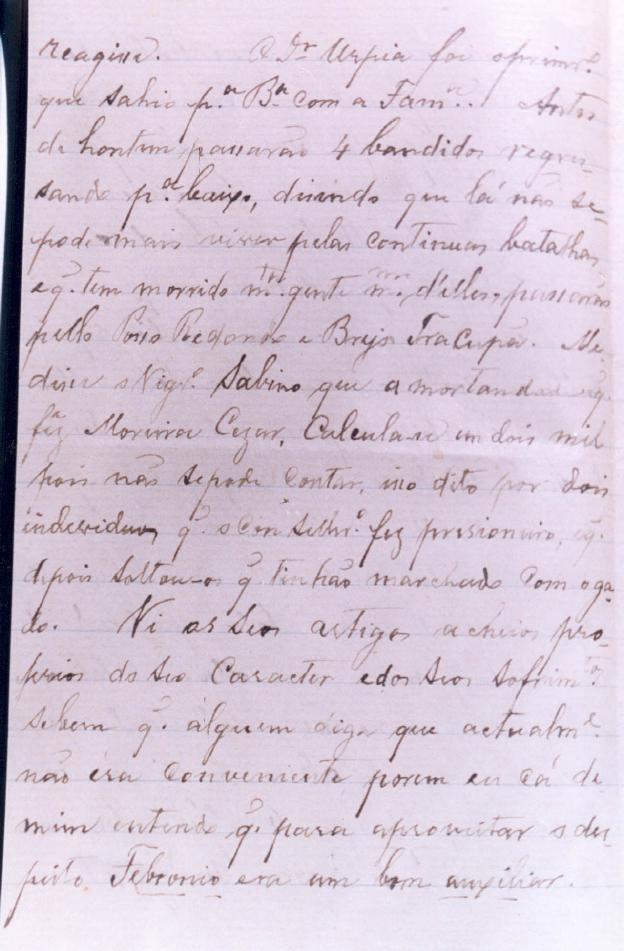 reagira. O Dr Urpia foi oprimro
que sahio p.a B.a com a Fam.a. Antes
de hontem, passarão 4 bandidos regres-
sando p.a baixo, disendo que lá não se-
pode mais viver pelas continuas batalhas,
eq. tem morrido m.ta gente m.ma d'elles, passarão
pello Posso Redondo e Brejo Tracupá. Me
disse o Vigr.o Sabino que a mortandade q.
fez Moreira Cezar, Calcula-se em dois mil
pois não sepode Contar, isso dito por dois
individuos q. o Conselhr.o fez presioneiro, eq.
depois Soltou-os q. tinhão marchado com oga-
do. Vi os seos artigos acheios pro-
prios do seo Caracter edos Seos Sofrim.tos
sebem q. álguem diga que actualm.e
não éra Conveniente porem eu cá de
mim entendo q. para aproveitar o des-
peito Febronio era um bom auxiliar.